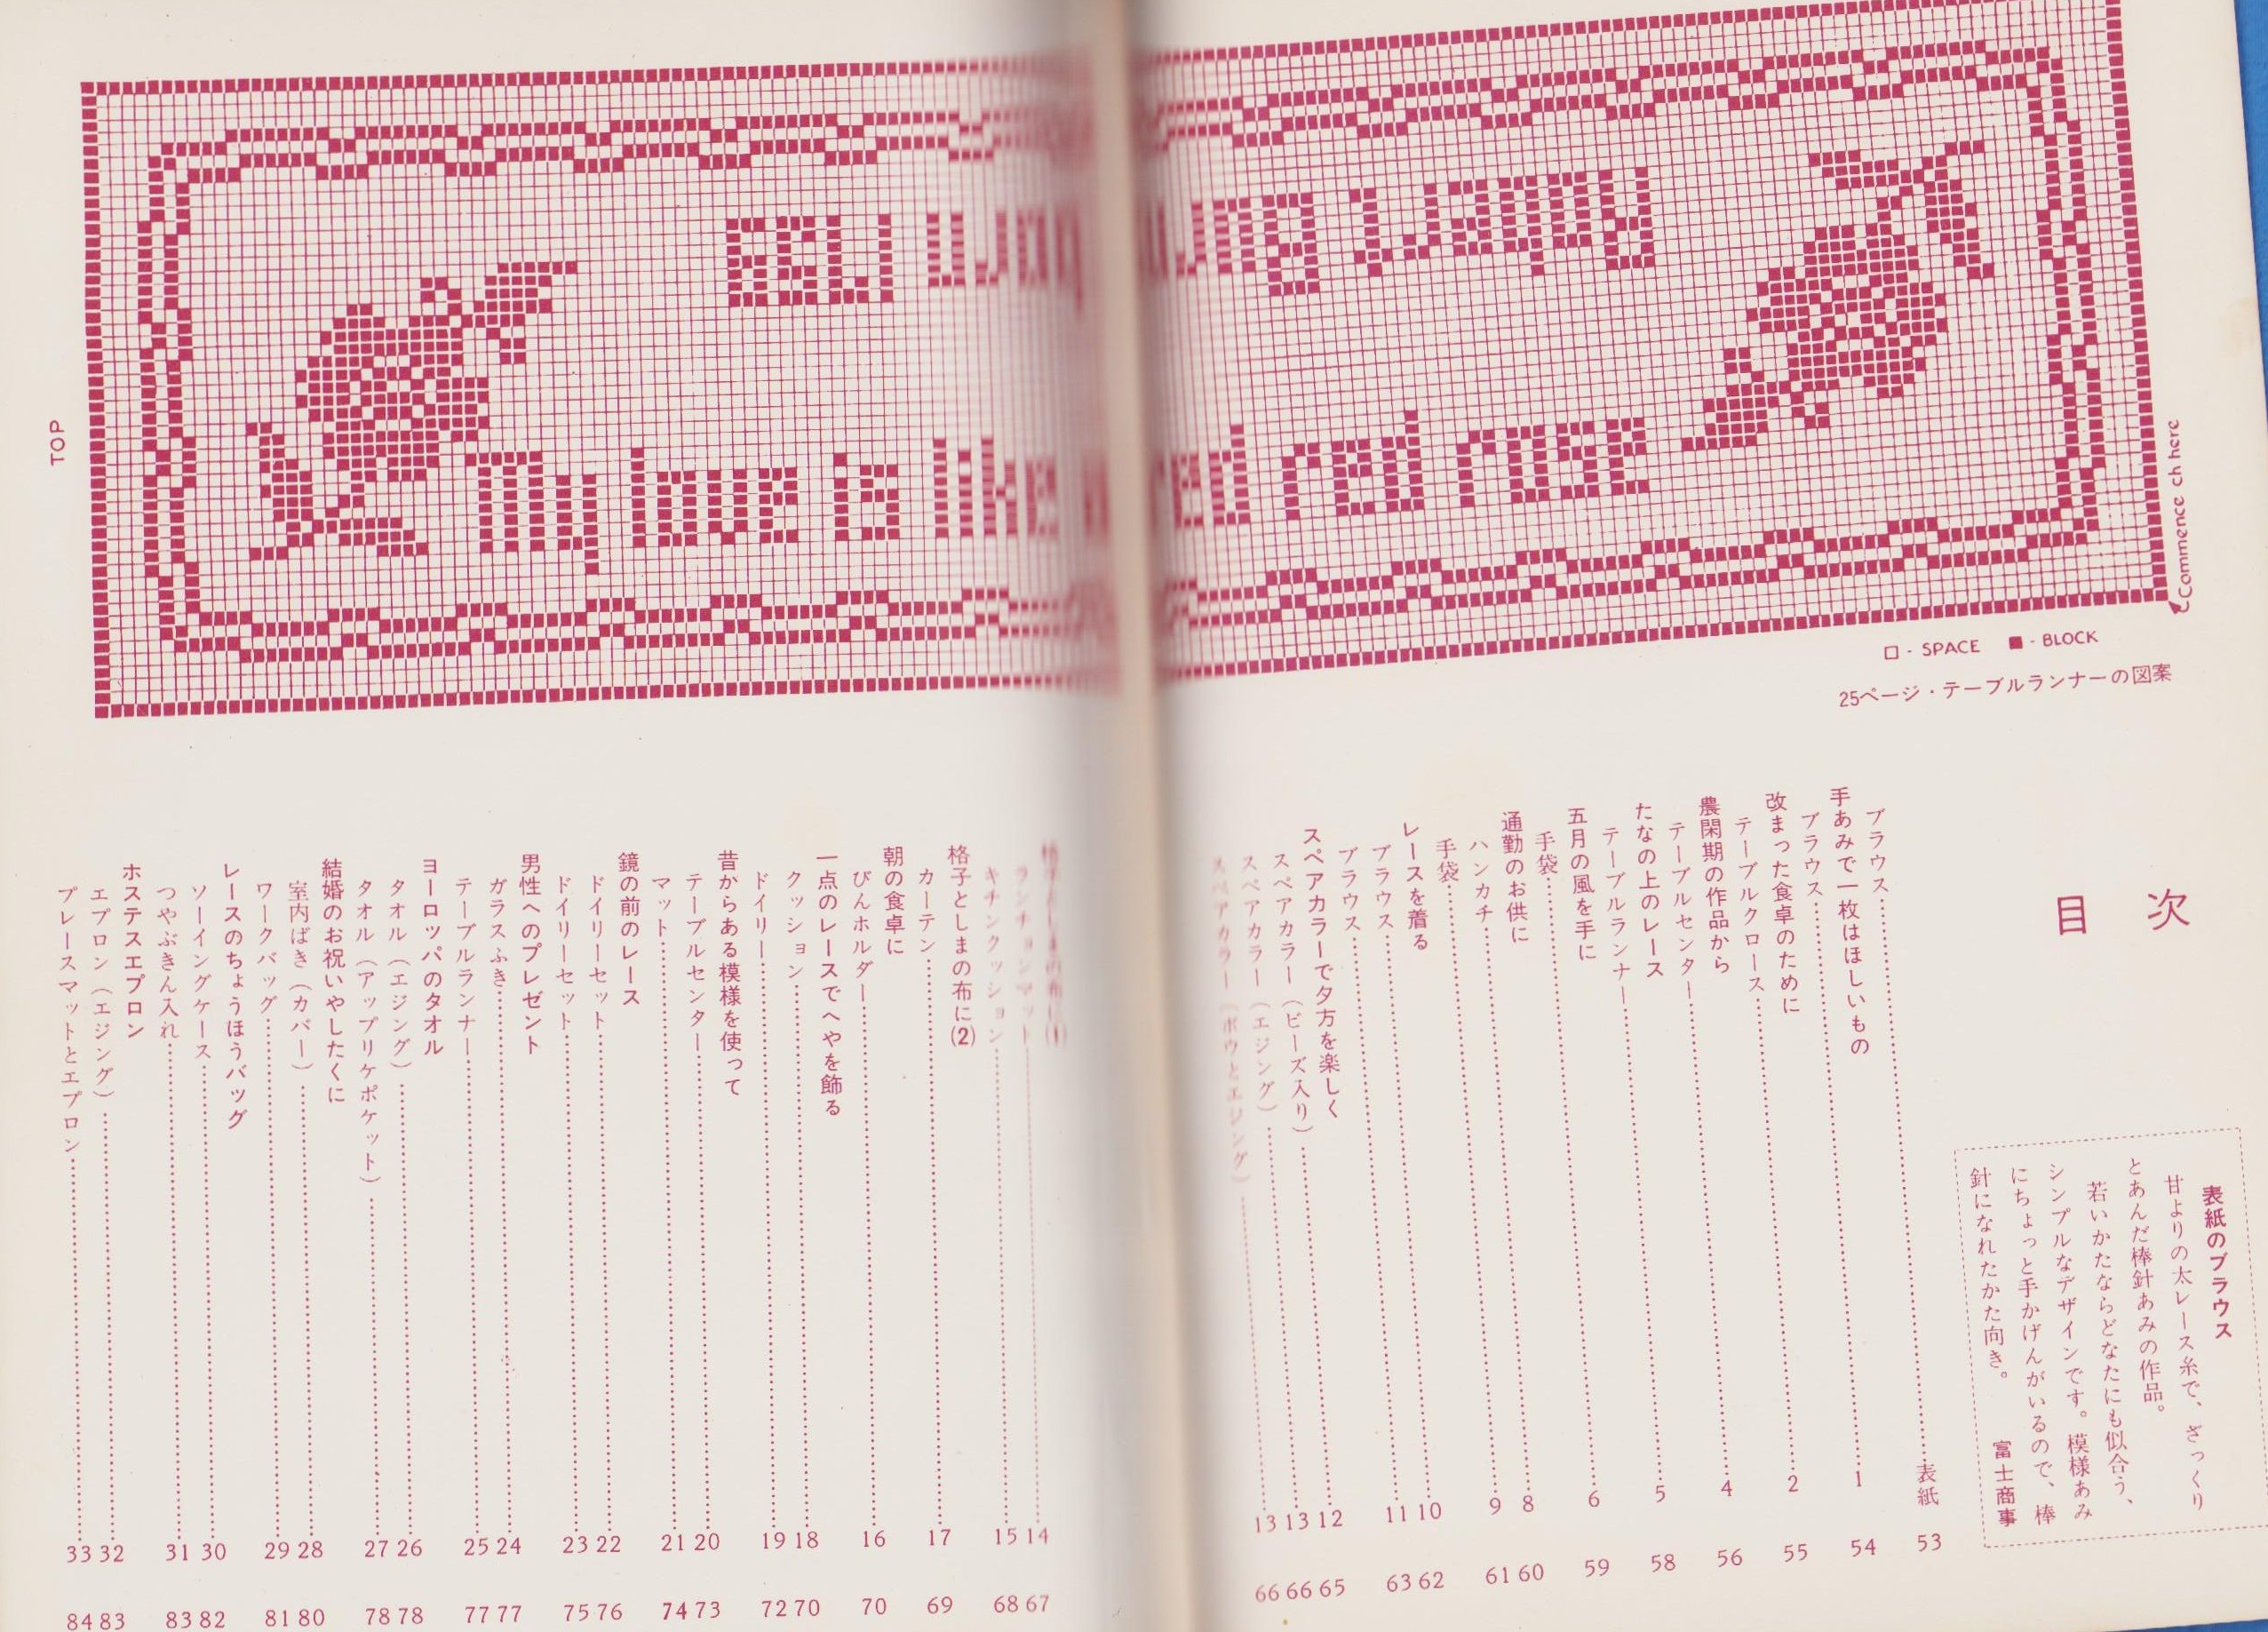 TOP
My love is like a red red rose
Commence ch here
□ - SPACE ■ - BLOCK
25ページ・テーブルランナーの図案
目次
表紙のブラウス
甘よりの太レース糸で、ざっくり
とあんだ棒針あみの作品。
若いかたならどなたにも似合う、
シンプルなデザインです。模様あみ
にちょっと手かげんがいるので、棒
針になれたかた向き。 富士商事
ブラウス……表紙 53
手あみで一枚はほしいもの
ブラウス……1 54
改まった食卓のために
テーブルクロース……2 55
農閑期の作品から
テーブルセンター……4 56
たなの上のレース
テーブルランナー……5 58
五月の風を手に
手袋……6 59
通勤のお供に
ハンカチ……8 60
手袋……9 61
レースを着る
ブラウス……10 62
ブラウス……11 63
スペアカラーで夕方を楽しく
スペアカラー（ビーズ入り）……12 65
スペアカラー（エジング）……13 66
スペアカラー（ボウとエジング）……13 66
格子としまの布に(1)
ランチョンマット……14 67
キチンクッション……15 68
格子としまの布に(2)
カーテン……17 69
朝の食卓に
びんホルダー……16 70
一点のレースでへやを飾る
クッション……18 70
ドイリー……19 72
昔からある模様を使って
テーブルセンター……20 73
マット……21 74
鏡の前のレース
ドイリーセット……22 76
ドイリーセット……23 75
男性へのプレゼント
ガラスふき……24 77
テーブルランナー……25 77
ヨーロッパのタオル
タオル（エジング）……26 78
タオル（アップリケポケット）……27 78
結婚のお祝いやしたくに
室内ばき（カバー）……28 80
ワークバッグ……29 81
レースのちょうほうバッグ
ソーイングケース……30 82
つやぶきん入れ……31 83
ホステスエプロン
エプロン（エジング）……32 83
プレースマットとエプロン……33 84